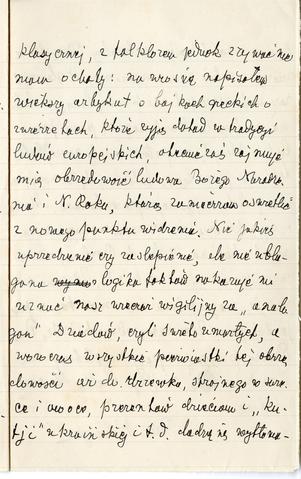 klasycznej, z folklorem jednak zrywać nie
mam ochoty: na wiosnę napisałem
większy artykuł o bajkach greckich o
zwierzętach, które żyją dotąd w tradycji
ludów europejskich, obecnie zaś zajmuje
mię obrzędowość ludowa Bożego Narodze-
nia i N. Roku, którą zamierzam oświetlić
z nowego punktu widzenia. Nie jakieś
uprzedzenie czy zaślepienie, ale nieubła-
gana logika faktów nakazuje mi
uznać nasz wieczór wigilijny za "analo-
gon" Dziadów, czyli święto umarłych, a
wówczas wszystkie pierwiastki tej obrzę-
dowości aż do drzewka, strojnego w świe-
ce i owoce, prezentów dzieciom i "ku-
tji" ukraińskiej i t. d. dadzą się wytłoma-